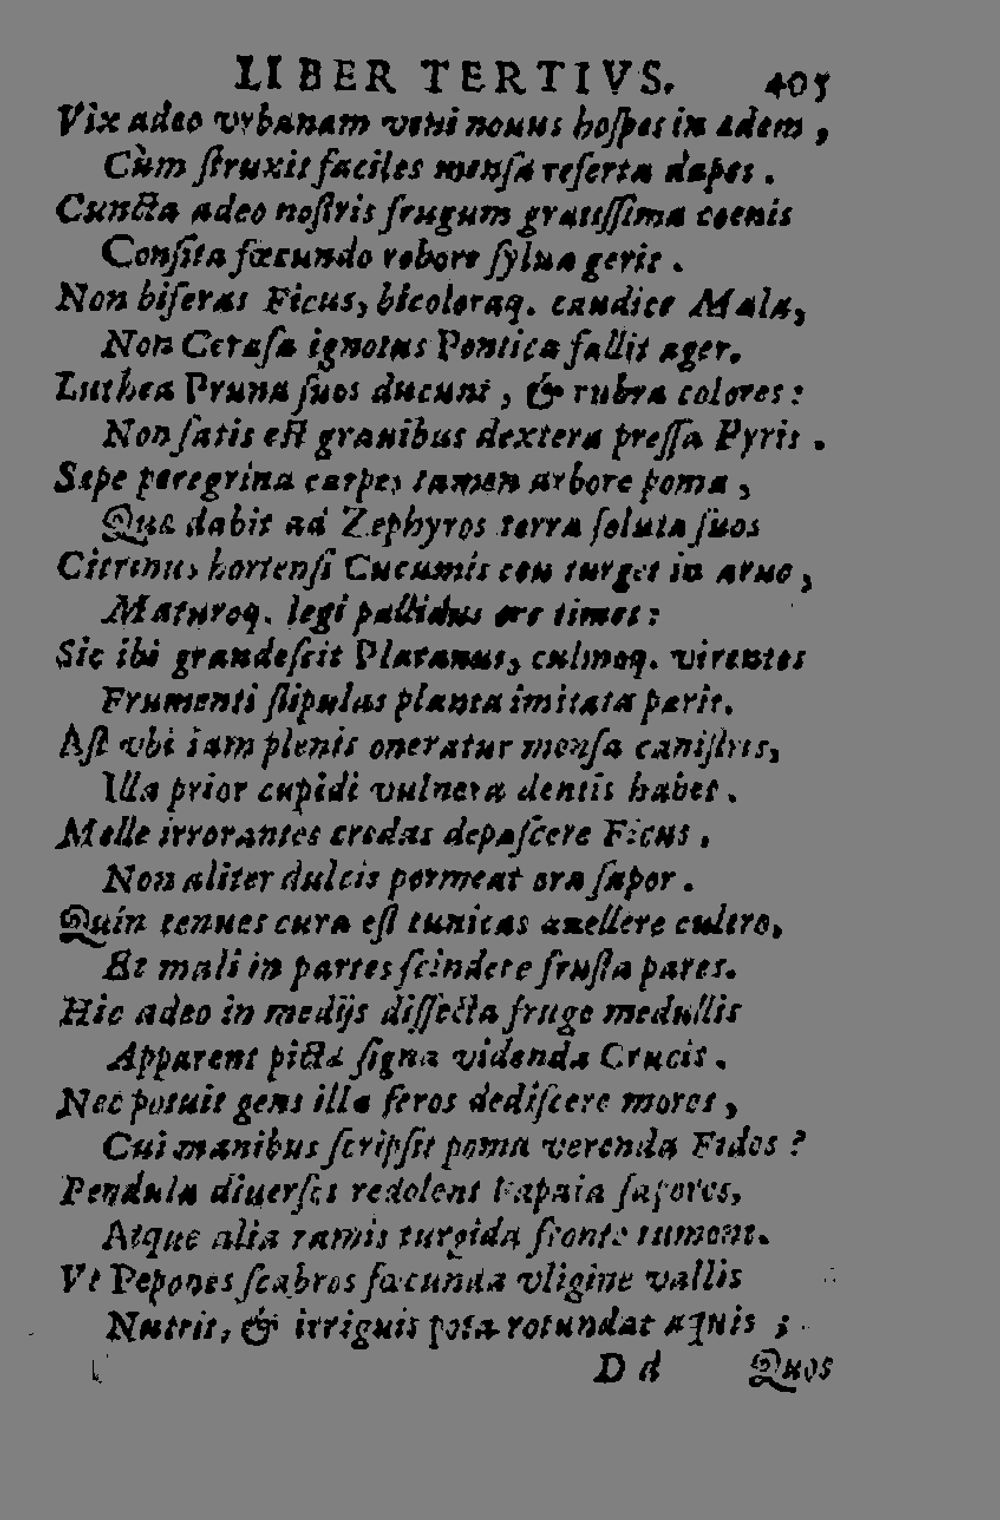 LIBER TERTIVS. 405
Vix adeo vrbanam veni nouus hoſpes in ædem,
Cùm ſtruxit faciles menſa referta dapes.
Cuncta adeo noſtris frugum gratiſſima coenis
Conſita fœcundo robore ſylua gerit.
Non biferas Ficus, bicoloraq. caudice Mala,
Non Ceraſa ignotus Pontica fallit ager.
Luthea Pruna ſuos ducunt, & rubra colores:
Non ſatis eſt grauibus dextera preſſa Pyris.
Sæpe peregrina carpes tamen arbore poma,
Quæ dabit ad Zephyros terra ſoluta ſuos
Citrinus hortenſi Cucumis ceu turget in aruo,
Maturoq. legi pallidus ore timet:
Sic ibi grandeſcit Platanus, culmoq. virentes
Frumenti ſtipulas planta imitata perit.
Aſt vbi iam plenis oneratur menſa caniſtris,
Illa prior cupidi vulnera dentis habet.
Melle irrorantes credas depaſcere Ficus,
Non aliter dulcis permeat ora ſapor.
Quin tenues cura eſt tunicas auellere cultro,
Et mali in partes ſcindere fruſta pares.
Hic adeo in medijs diſſecta fruge medullis
Apparent pictæ ſigna videnda Crucis.
Nec potuit gens illa feros dediſcere mores,
Cui manibus ſcripſit poma verenda Fides?
Pendula diuerſos redolent Papaia ſapores,
Atque alia ramis turgida fronte tument.
Vt Pepones ſcabros fœcunda vligine vallis
Nutrit, & irriguis pota rotundat aquis;
D d Quos